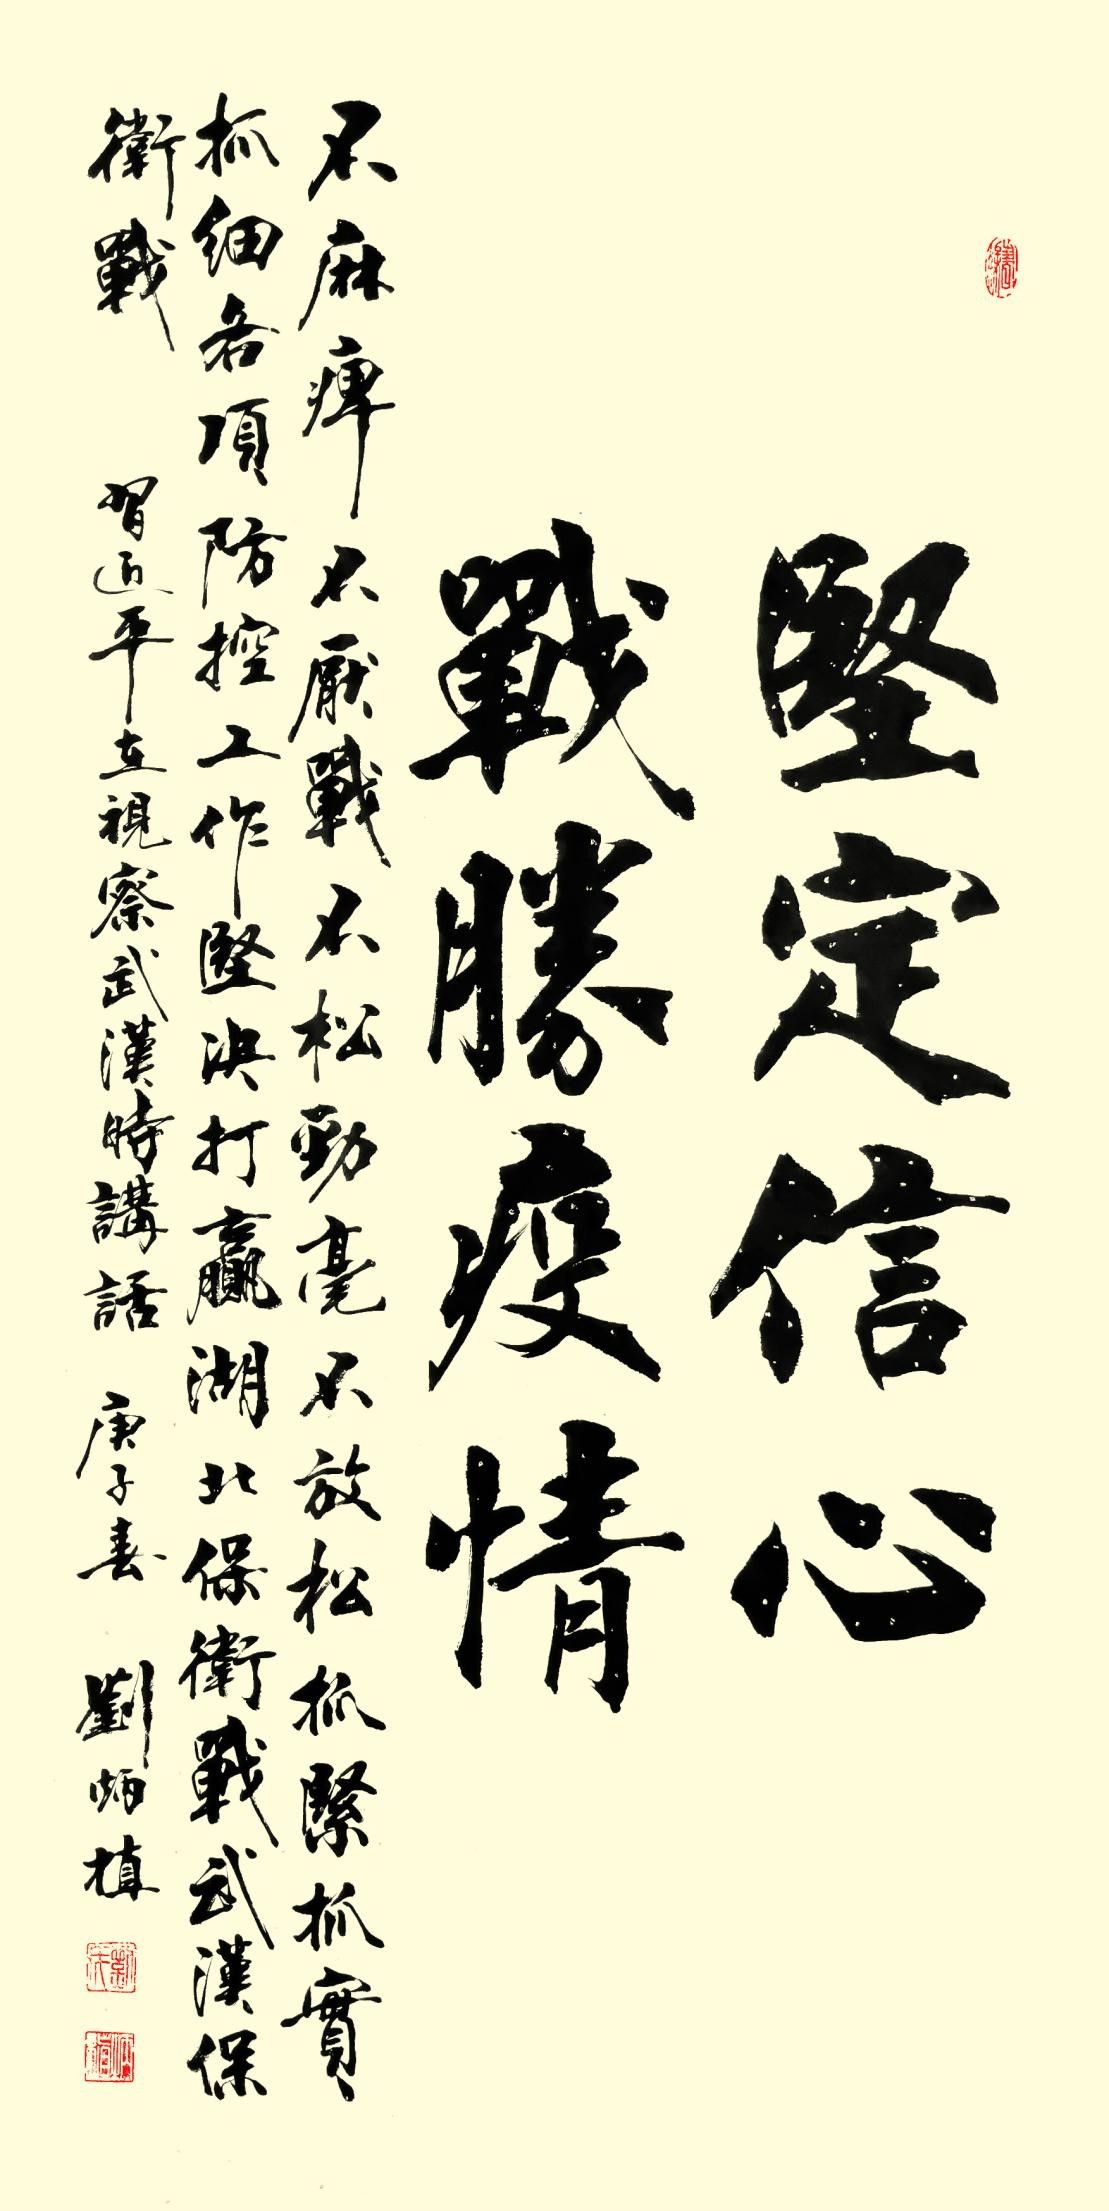 堅定信心
戰勝疫情
不麻痺不厭戰不松勁毫不放松抓緊抓實
抓細各項防控工作堅決打贏湖北保衛戰武漢保
衛戰 習近平在視察武漢時講話 庚子春 劉炳植